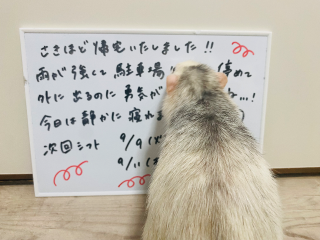 さきほど 帰宅いたしました!!
雨が 強くて 駐車場 停めて
外に 出るのに 勇気が な…!
今日は 静かに 寝れま
次回シフト 9/9(
9/11(